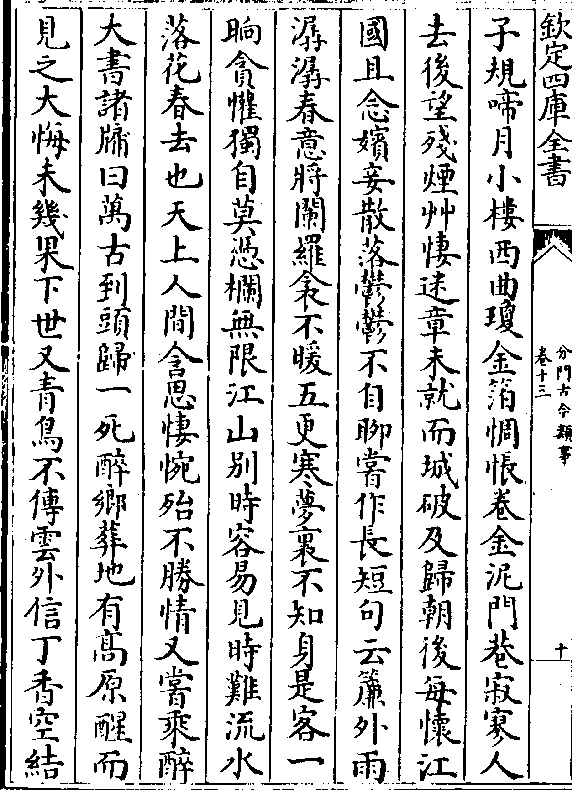 欽定四庫全書
分門古今類事
卷十三
十
子規啼月小樓西曲瓊金箔惆悵卷金泥門巷寂寥人
去後望殘煙艸悽迷章未就而城破及歸朝後每懷江
國且念嬪妾散落鬱鬱不自聊嘗作長短句云簾外雨
潺潺春意將闌羅衾不暖五更寒夢裏不知身是客一
晌貪懽獨自莫憑欄無限江山別時容易見時難流水
落花春去也天上人間含思悽惋殆不勝情又嘗乘醉
大書諸牖曰萬古到頭歸一死醉鄉葬地有髙原醒而
見之大悔未幾果下世又青鳥不傳雲外信丁香空結